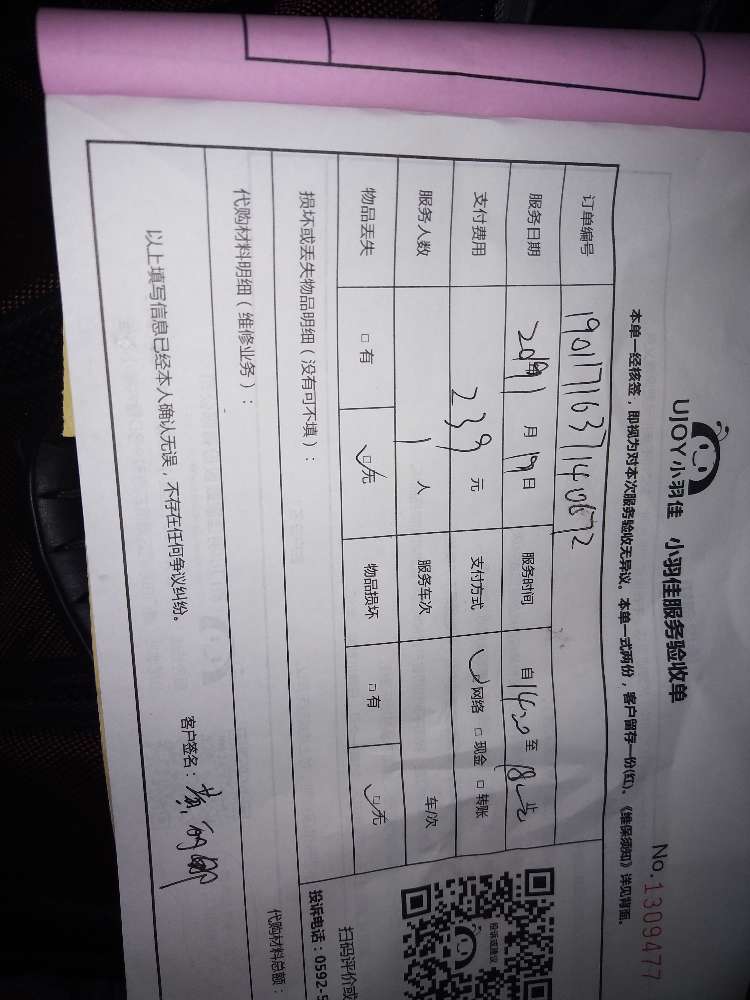 UJOY小羽佳 小羽佳服务验收单
No.1309477
本单一经核签，即视为对本次服务验收无异议。本单一式两份，客户留存一份(红)。《维保须知》详见背面。
订单编号 190117163714067​2
服务日期 2019年1月19日 服务时间 自14:00至18:00止
支付费用 239元 支付方式 网络 □现金 □转账
服务人数 1人 服务车次 车/次
物品丢失 □有 □无 物品损坏 □有 □无
损坏或丢失物品明细（没有可不填）：
代购材料明细（维修业务）：
以上填写信息已经本人确认无误，不存在任何争议纠纷。
客户签名：
投诉或建议
扫码评价或
投诉电话：0592-5
代购材料总额：